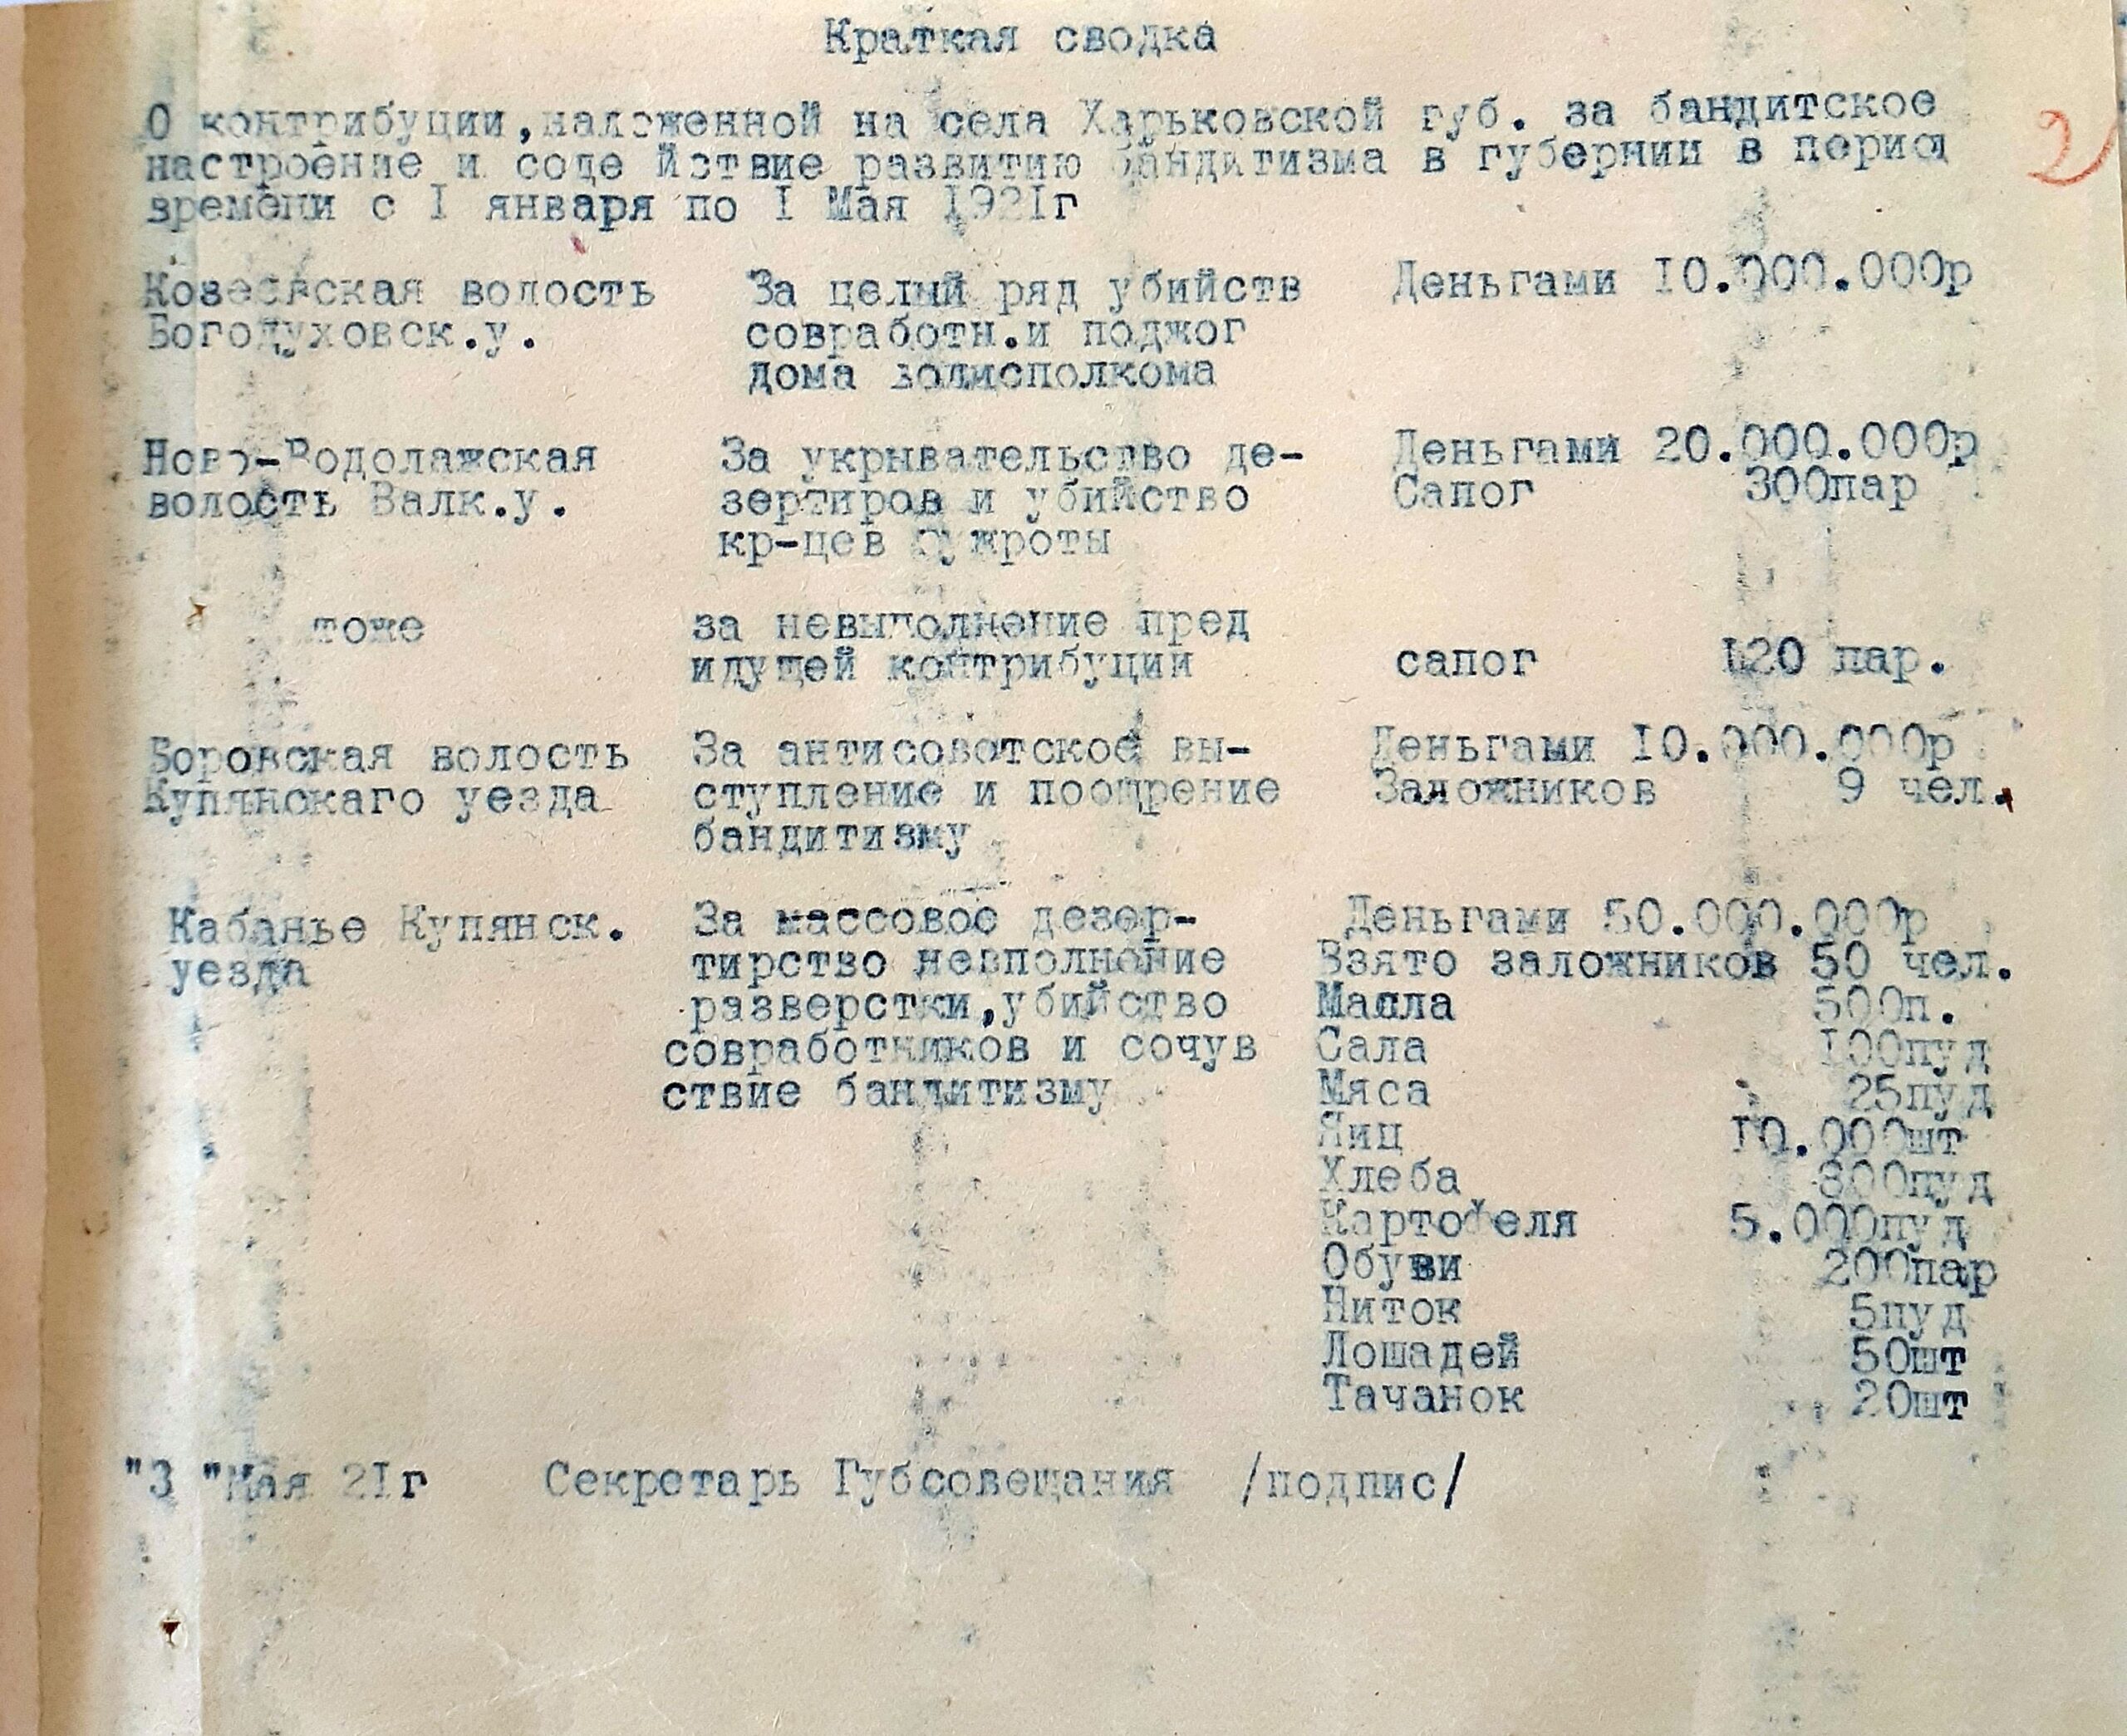 Краткая сводка
2
О контрибуции,наложенной на села Харьковской губ. за бандитское
настроение и соде йствие развитию бандитизма в губернии в период
времени с I января по I Мая I92Iг
Козеевская волость За целый ряд убийств Деньгами I0.000.000р
Богодуховск.у. совработн.и поджог
дома волисполкома
Ново-Водолажская За укрывательство де- Деньгами 20.000.000р
волость Валк.у. зертиров и убийство Сапог 300пар
кр-цев роты
тоже за невыполнение пред
идущей контрибуции сапог 120 пар.
Боровская волость За антисоветское вы- Деньгами I0.000.000р
Купянскаго уезда ступление и поощрение Заложников 9 чел.
бандитизму
Кабанье Купянск. За массовое дезер- Деньгами 50.000.000р
уезда тирство невполнение Взято заложников 50 чел.
разверстки,убийство Масла 500п.
совработников и сочув Сала I00пуд
ствие бандитизму Мяса 25пуд
Яиц I0.000шт
Хлеба 800пуд
Картофеля 5.000пуд
Обуви 200пар
Ниток 5пуд
Лошадей 50шт
Тачанок 20шт
"3 "Мая 2Iг Секретарь Губсовещания /подпис/